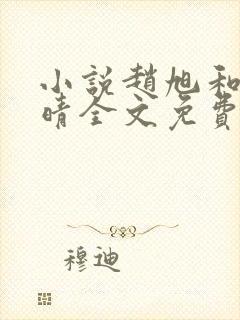 小説趙旭和
晴全文免費
穆迪